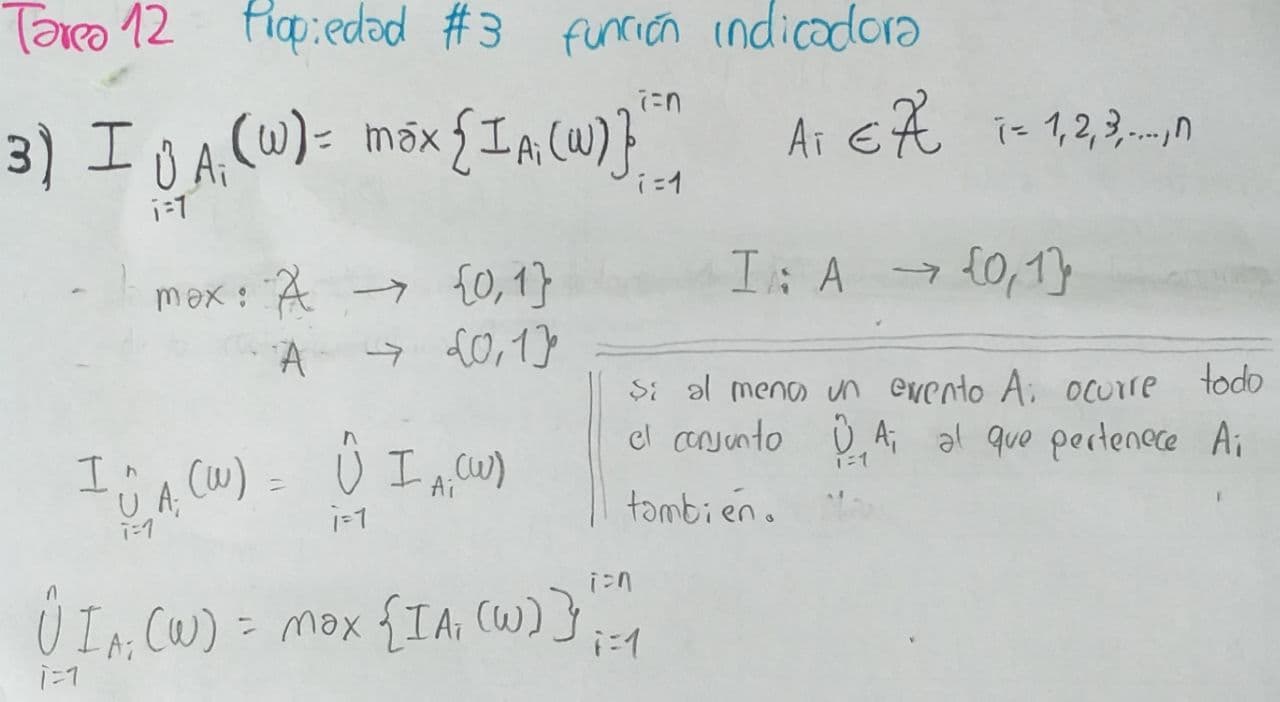 Tarea 12 Propiedad #3 función indicadora
3) I ⋃ⁿᵢ₌₁ Aᵢ (ω) = máx {I Aᵢ (ω)} i=n i=1 Aᵢ ∈ 𝒜 i = 1,2,3,....,n
- max : 𝒜 → {0,1} I : A → {0,1}
A → {0,1}
Si al menos un evento Aᵢ ocurre todo
el conjunto ⋃ⁿᵢ₌₁ Aᵢ al que pertenece Aᵢ
también.
I ⋃ⁿᵢ₌₁ Aᵢ (ω) = ⋃ⁿᵢ₌₁ I Aᵢ (ω)
⋃ⁿᵢ₌₁ I Aᵢ (ω) = max {I Aᵢ (ω)} i=n i=1